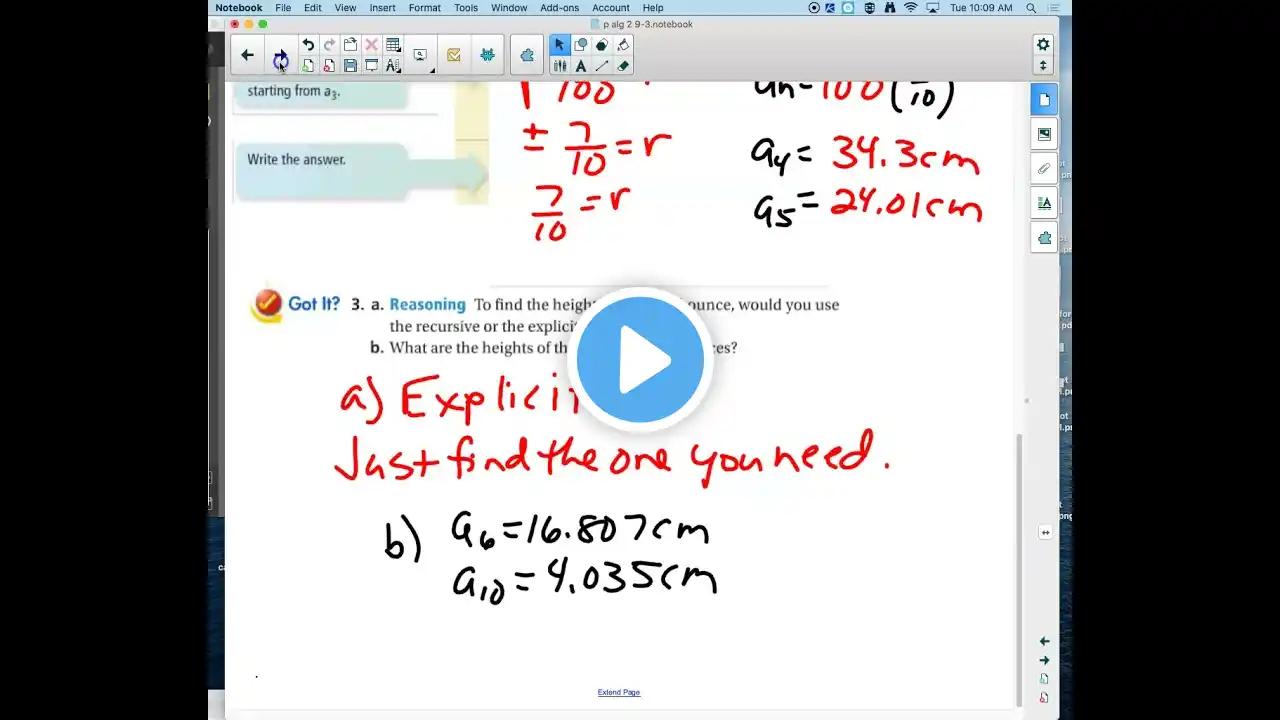 Notebook File Edit View Insert Format Tools Window Add-ons Account Help Tue 10:09 AM
p alg 2 9-3.notebook
starting from a₃.
Write the answer.
100
± 7/10 = r
7/10 = r
aₙ = 100 (7/10)
a₄ = 34.3cm
a₅ = 24.01cm
Got It? 3. a. Reasoning To find the height ounce, would you use
the recursive or the explicit
b. What are the heights of the
a) Explicit
Just find the one you need.
b) a₆ = 16.807cm
a₁₀ = 4.035cm
Extend Page